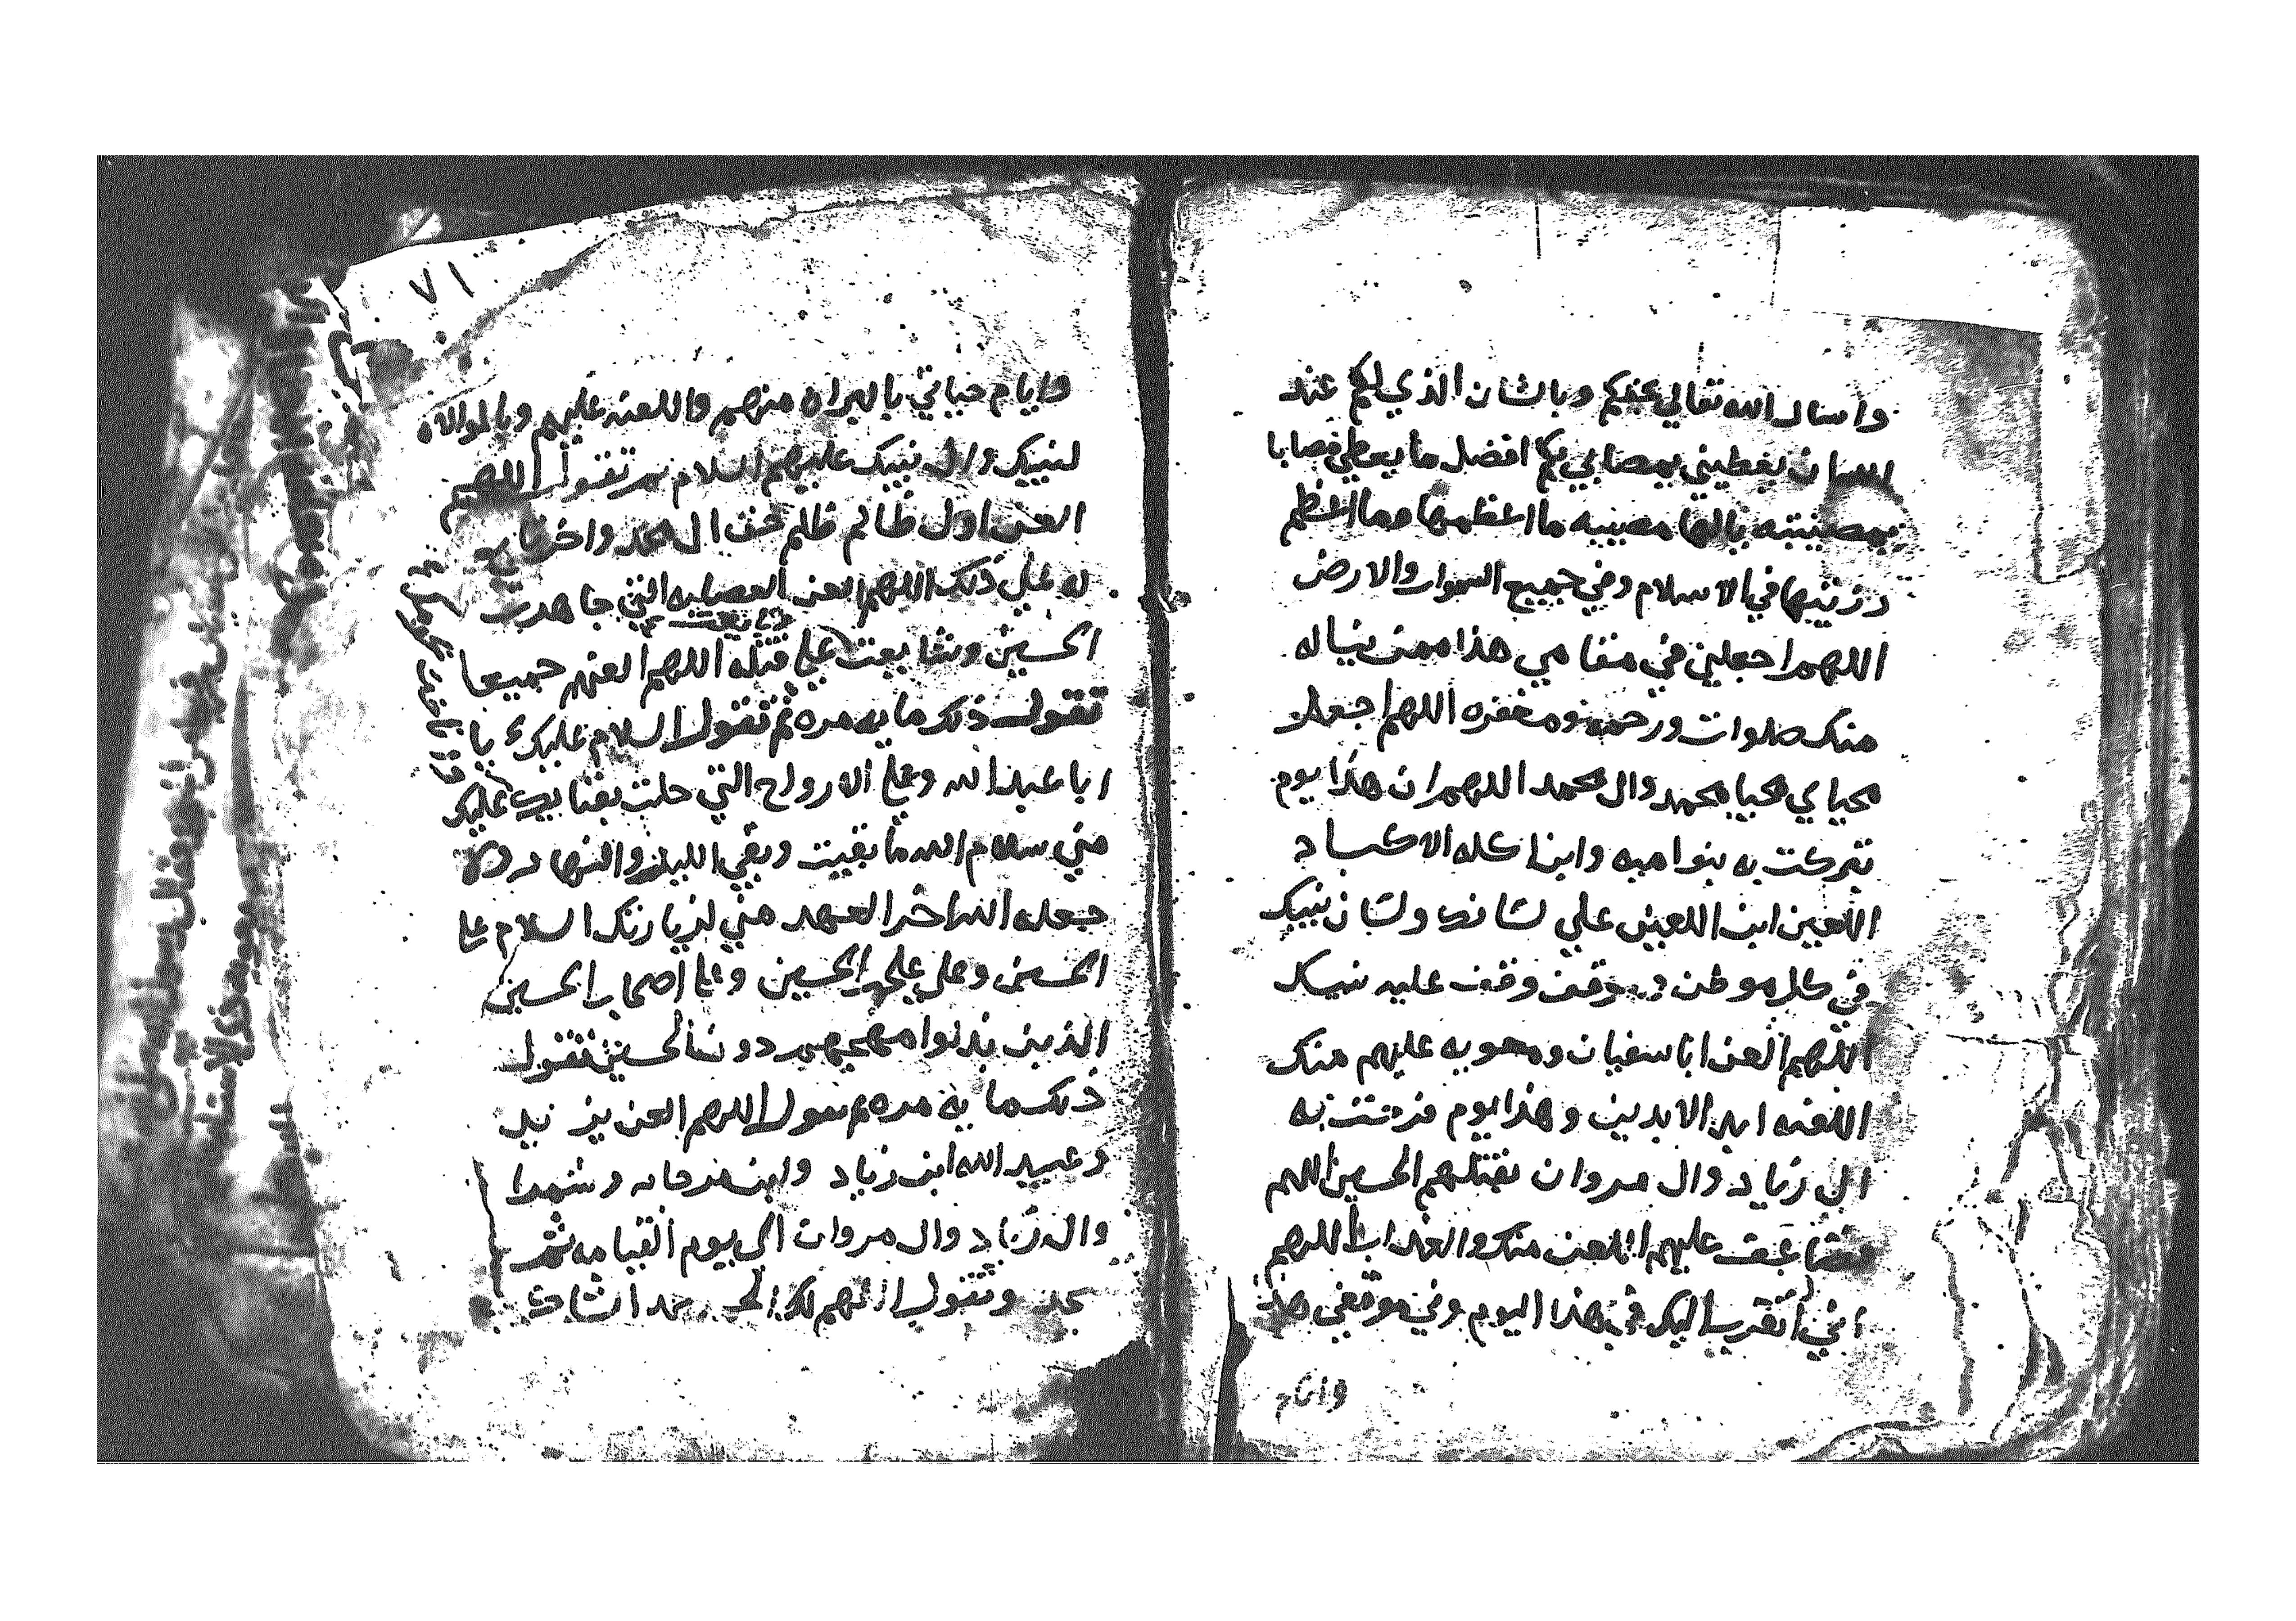 واسال الله تعالي بحقكم وبالشان الذي لكم عند
الله ان يعطيني بمصابي بكم افضل ما يعطي مصابا
بمصيبته يالها مصيبه ما اعظمها وما اعظم
رزيتها في الاسلام وفي جميع السموات والارض
اللهم اجعلني في مقامي هذا ممن تناله
منك صلوات ورحمه ومغفره اللهم اجعل
محياي محيا محمد وال محمد اللهم ان هذا يوم
تبركت به بنوا ميه وابن اكله الاكباد
اللعين ابن اللعين علي لسانك ولسان نبيك
في كل موطن وموقف وقف عليه نبيك
اللهم العن ابا سفيان ومعويه عليهم منك
اللعنه ابد الابدين وهذا يوم فرحت به
ال زياد وال مروان بقتلهم الحسين اللهم
فضاعف عليهم اللعن منك والعذاب اللهم
اني اتقرب اليك في هذا اليوم وفي موقفي هذا
وايام
٧١
وايام حياتي بالبراه منهم واللعنه عليهم وبالموالاه
لنبيك وال نبيك عليهم السلام ثم تقول اللهم
العن اول ظالم ظلم حق ال محمد واخر تابع
له علي ذلك اللهم العن العصابه التي جاهدت
الحسين وشايعت علي قتله اللهم العنهم جميعا
تقول ذلك مايه مره ثم تقول السلام عليك يا
ابا عبد الله وعلي الارواح التي حلت بفنايك عليك
مني سلام الله ما بقيت وبقي الليل والنهار ولا
جعله الله اخر العهد مني لزيارتك السلام علي
الحسين وعلي علي بن الحسين وعلي اصحاب الحسين
الذين بذلوا مهجهم دون الحسين تقول
ذلك مايه مره ثم تقول اللهم العن يزيد
وعبيد الله ابن زياد وابن مرجانه وشمرا
وال زياد وال مروان الي يوم القيامه ثم
تسجد وتقول اللهم لك الحمد حمد الشاكر